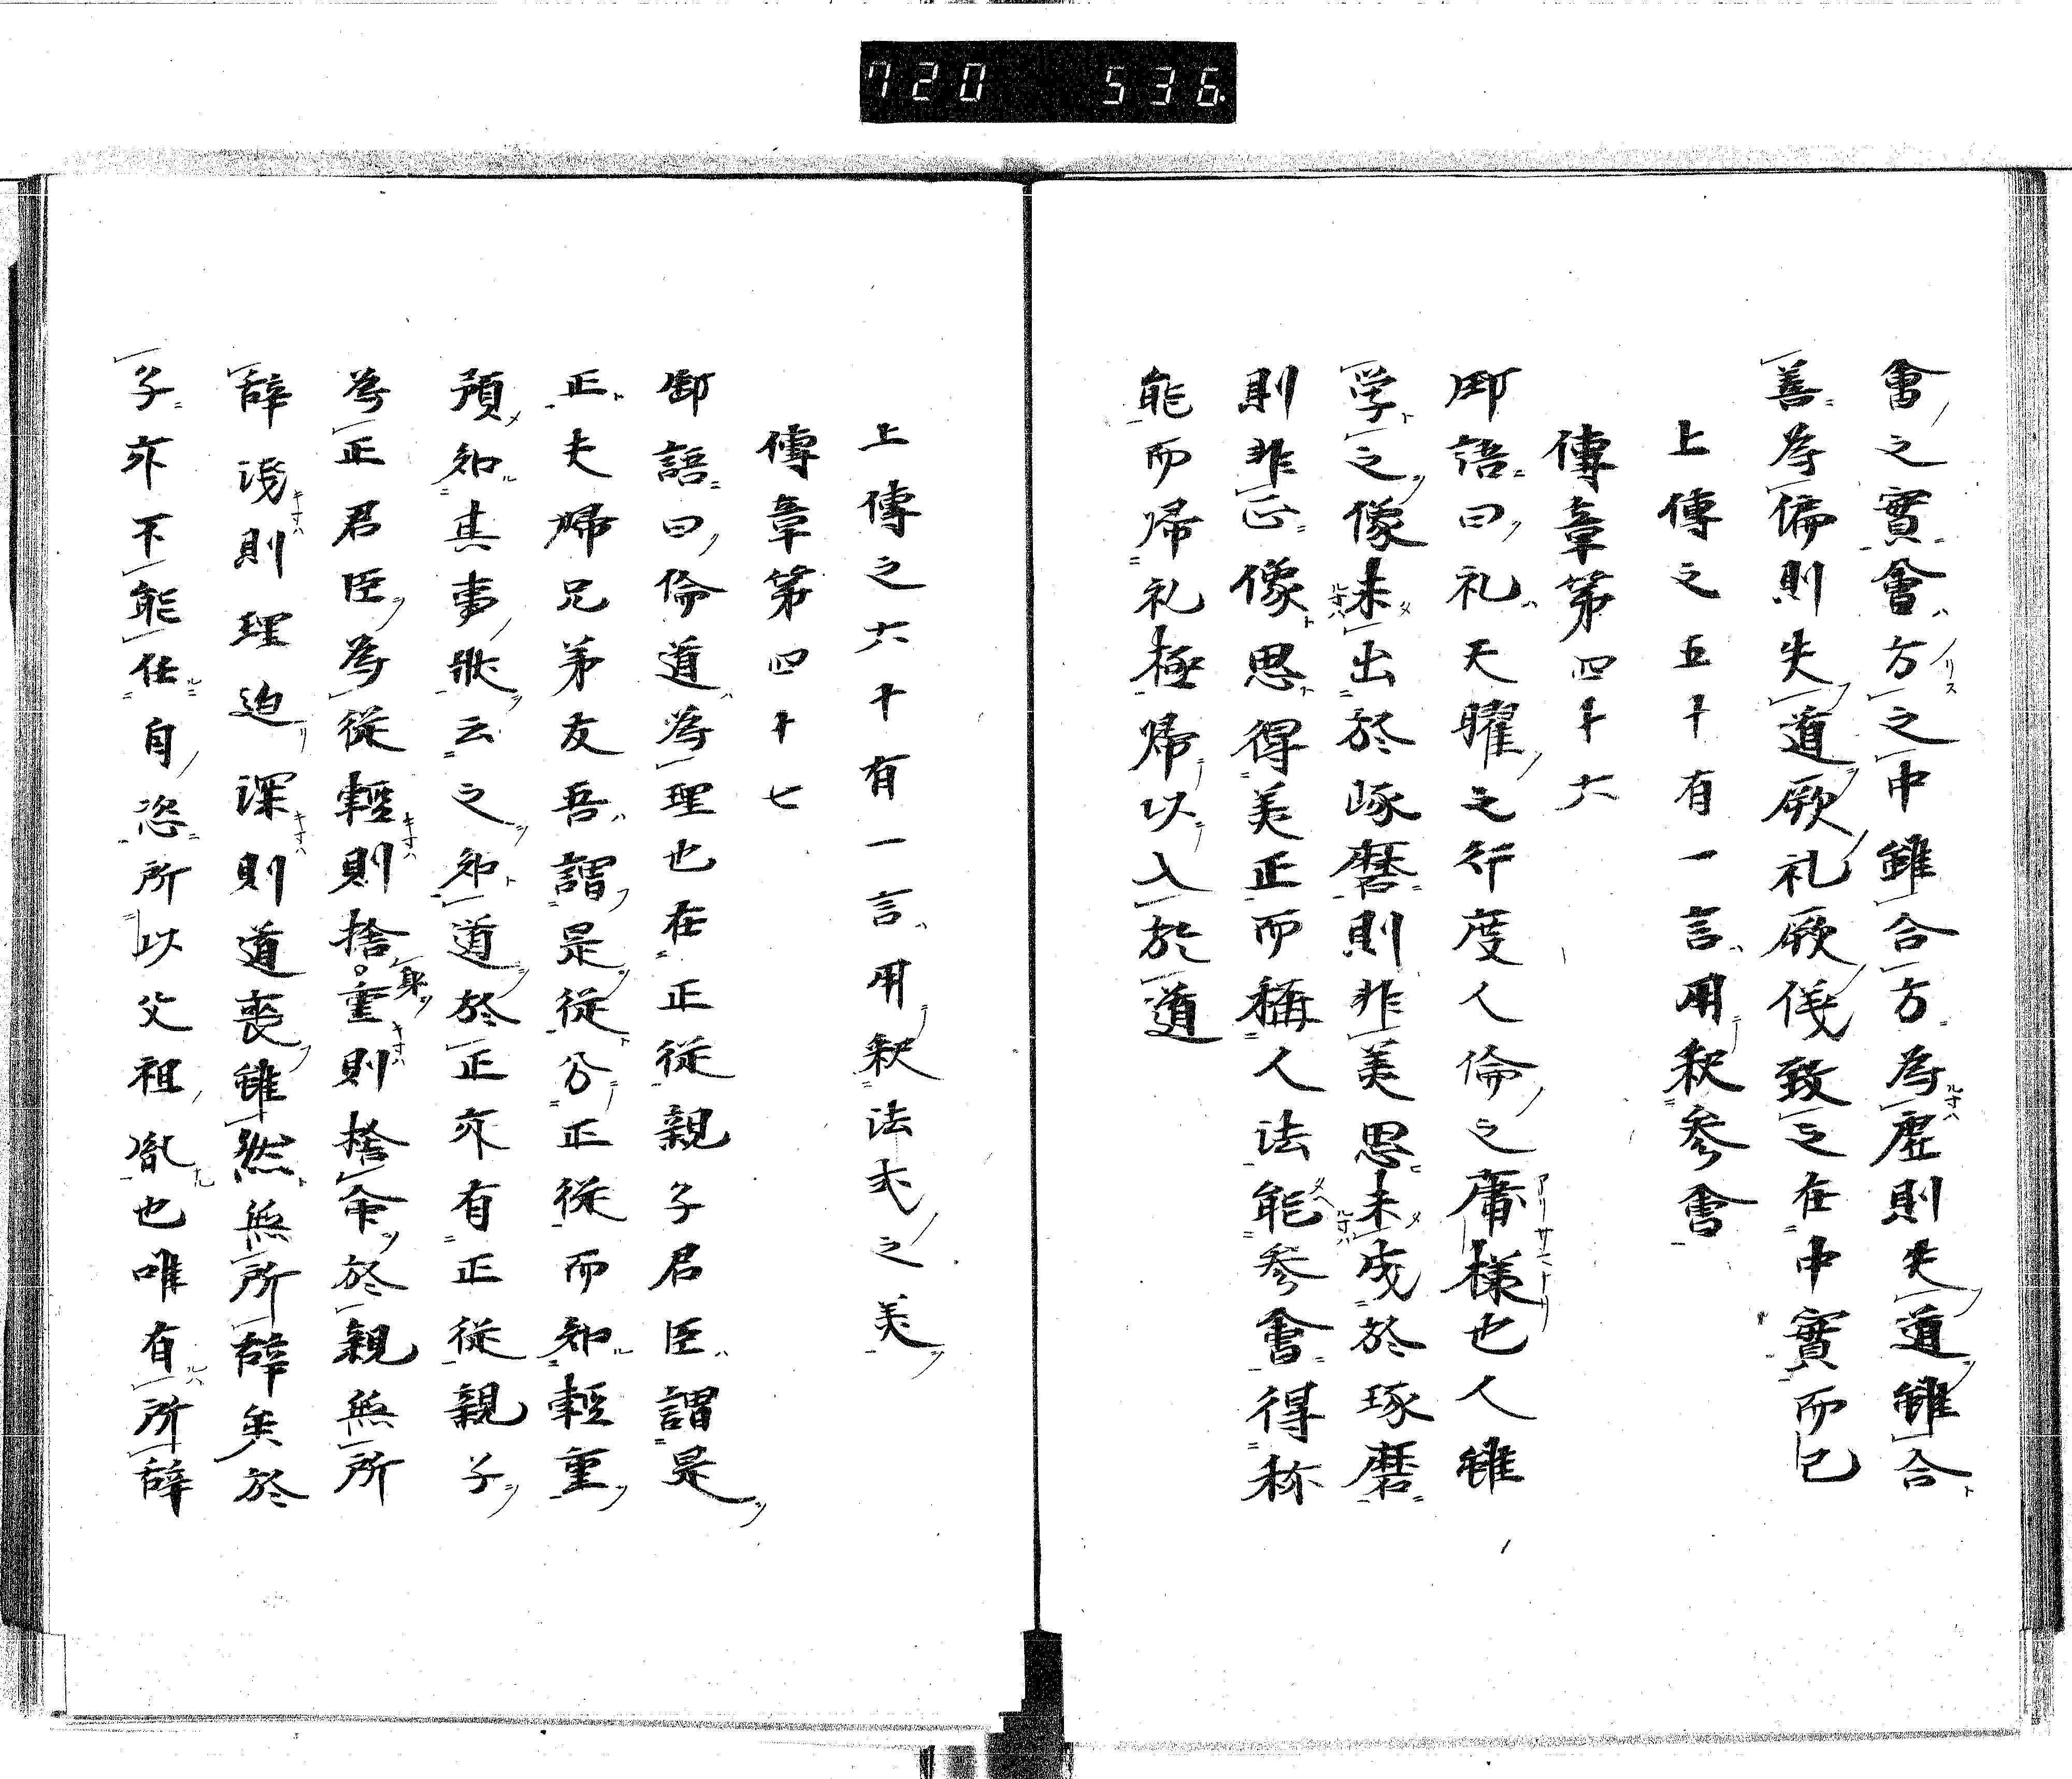 720 536.
會之實會方之中雖合方為虛則失道雖合
善為偏則失道厥礼厥儀致之在中實而已
上傳之五十有一言用釈參會
傳章第四十六
御語曰礼天曜之行度人倫之庸様也人雖
学之像未出於啄磨則非美思未成於琢磨
則非正像思得美正而稱人法能參會得称
能而帰礼極帰以入於道
上傳之六十有一言用釈法式之美
傳章第四十七
御語曰倫道為理也在正従親子君臣謂是
正夫婦兄弟友吾謂是従分正従而知輕重
預知其事狀云之知道於正亦有正従親子
為正君臣為従輕則捨身重則捨命於親無所
辞浅則理迫深則道喪雖然無所辞矣於
子亦不能任自恣所以父祖胤也唯有所辞